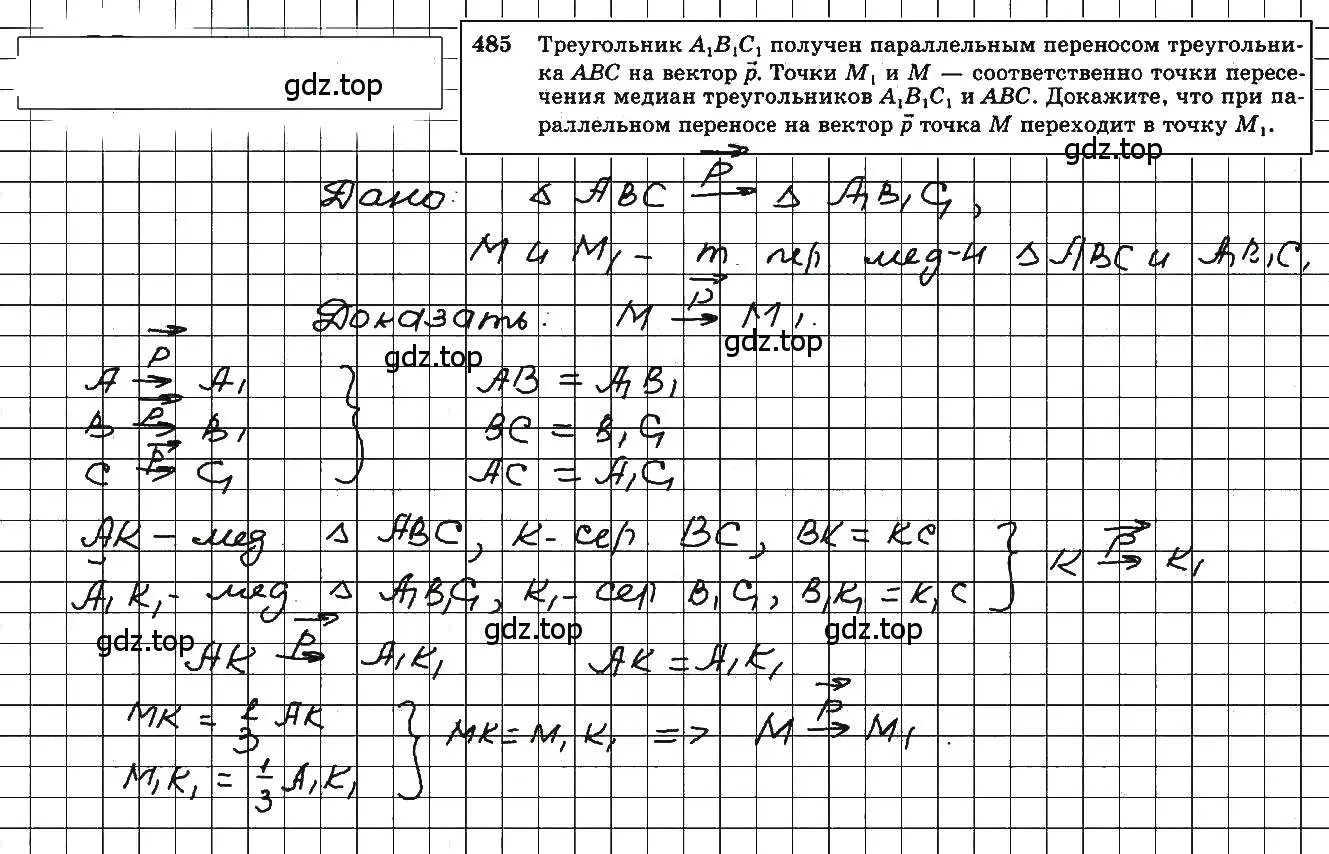 gdz.top
485 Треугольник A₁B₁C₁ получен параллельным переносом треугольни-
ка ABC на вектор p⃗. Точки M₁ и M — соответственно точки пересе-
чения медиан треугольников A₁B₁C₁ и ABC. Докажите, что при па-
раллельном переносе на вектор p⃗ точка M переходит в точку M₁.
gdz.top
Дано: Δ ABC →(p⃗) Δ A₁B₁C₁,
M и M₁ – т. пер. мед-н Δ ABC и A₁B₁C₁
Доказать: M →(p⃗) M₁.
gdz.top gdz.top
A →(p⃗) A₁ } AB = A₁B₁
B →(p⃗) B₁ } BC = B₁C₁
C →(p⃗) C₁ } AC = A₁C₁
AK – мед. Δ ABC, K - сер. BC, BK = KC } K →(p⃗) K₁
A₁K₁ - мед. Δ A₁B₁C₁, K₁ - сер B₁C₁, B₁K₁ = K₁C }
gdz.top gdz.top gdz.top
AK →(p⃗) A₁K₁ AK = A₁K₁
MK = 1/3 AK } MK = M₁K₁ => M →(p⃗) M₁.
M₁K₁ = 1/3 A₁K₁ }